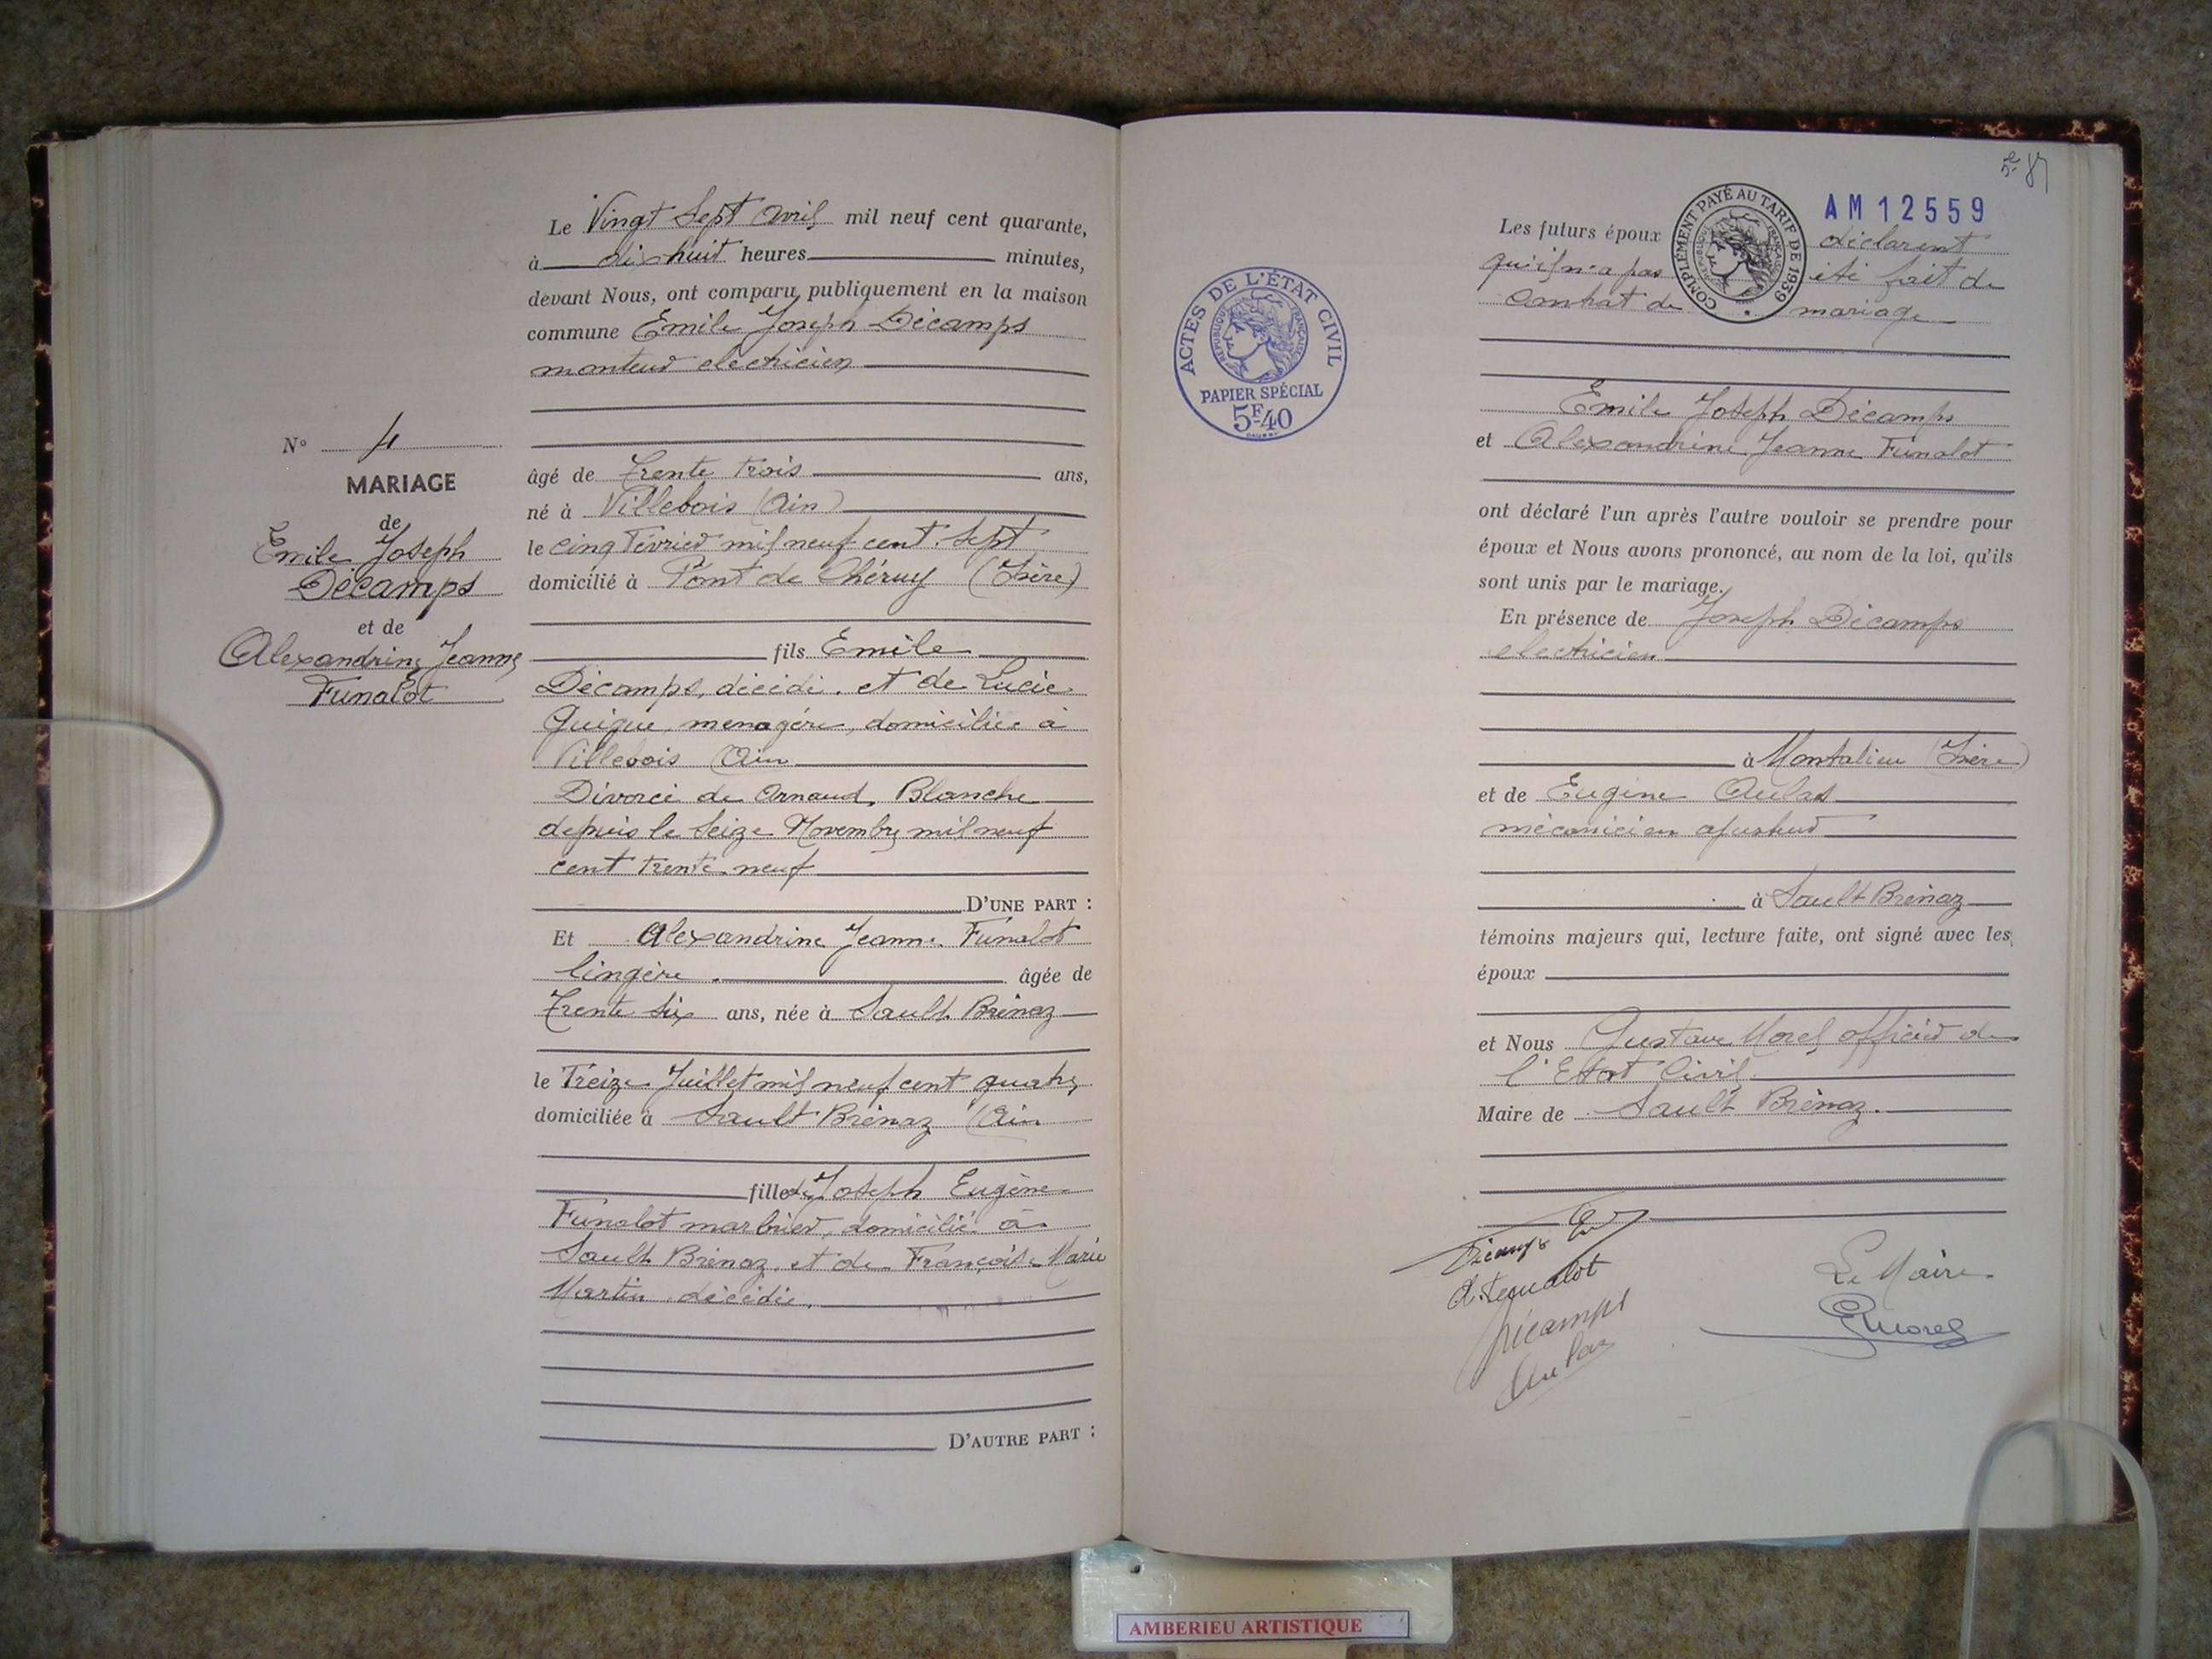 Le Vingt Sept Avril mil neuf cent quarante,
à dix huit heures minutes,
devant Nous, ont comparu publiquement en la maison
commune Emile Joseph Décamps
monteur electricien
N° 4
MARIAGE
de
Emile Joseph
Décamps
et de
Alexandrine Jeanne
Funalot
âgé de Trente trois ans,
né à Villebois (Ain)
le cinq Février mil neuf cent sept
domicilié à Pont de Chéruy (Isère)
fils Emile
Décamps, décédé et de Lucie
Quique, menagère, domiciliée à
Villebois (Ain
Divorcé de Arnaud, Blanche
depuis le Seize Novembre mil neuf
cent trente neuf
D'UNE PART :
Et Alexandrine Jeanne Funalot
lingère âgée de
Trente six ans, née à Sault Brénaz
le Treize Juillet mil neuf cent quatre
domiciliée à Sault Brénaz (Ain
fille de Joseph Eugène
Funalot marbrier, domicilié à
Sault Brénaz, et de Françoise Marie
Martin décédée.
D'AUTRE PART :
AM12559
COMPLÉMENT PAYÉ AU TARIF DE 1939
RÉPUBLIQUE FRANÇAISE
Les futurs époux déclarent
qu'il n'a pas été fait de
contrat de mariage
ACTES DE L'ÉTAT CIVIL
RÉPUBLIQUE FRANÇAISE
PAPIER SPÉCIAL
5F40
Emile Joseph Décamps
et Alexandrine Jeanne Funalot
ont déclaré l'un après l'autre vouloir se prendre pour
époux et Nous avons prononcé, au nom de la loi, qu'ils
sont unis par le mariage.
En présence de Joseph Décamps
electricien
à Montalieu (Isère)
et de Eugène Aulas
mécanicien ajusteur
à Sault Brénaz
témoins majeurs qui, lecture faite, ont signé avec les
époux
et Nous Gustave Morel officier de
l'Etat Civil
Maire de Sault Brénaz.
Décamps
Décamps
Aulas
Le Maire
GMorel
AMBERIEU ARTISTIQUE